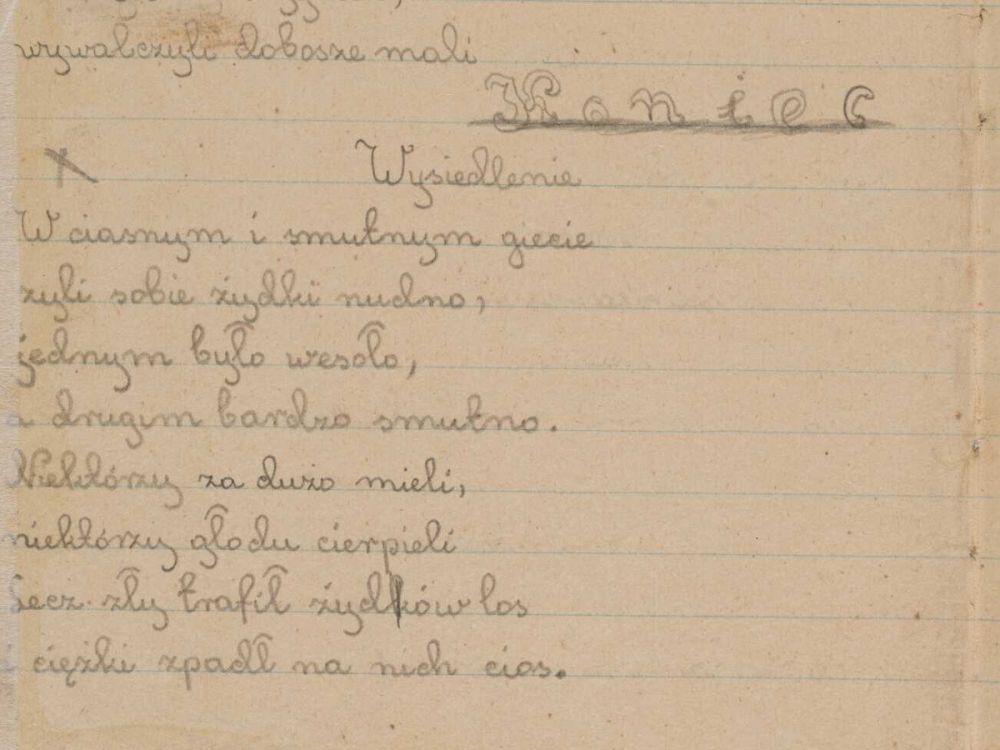 wywalczyli dobosze mali
Koniec
Wysiedlenie
W ciasnym i smutnym giecie
żyli sobie żydki nudno,
jednym było wesoło,
a drugim bardzo smutno.
Niektórzy za dużo mieli,
niektórzy głodu cierpieli
Lecz zły trafił żydków los
i ciężki zpadł na nich cios.